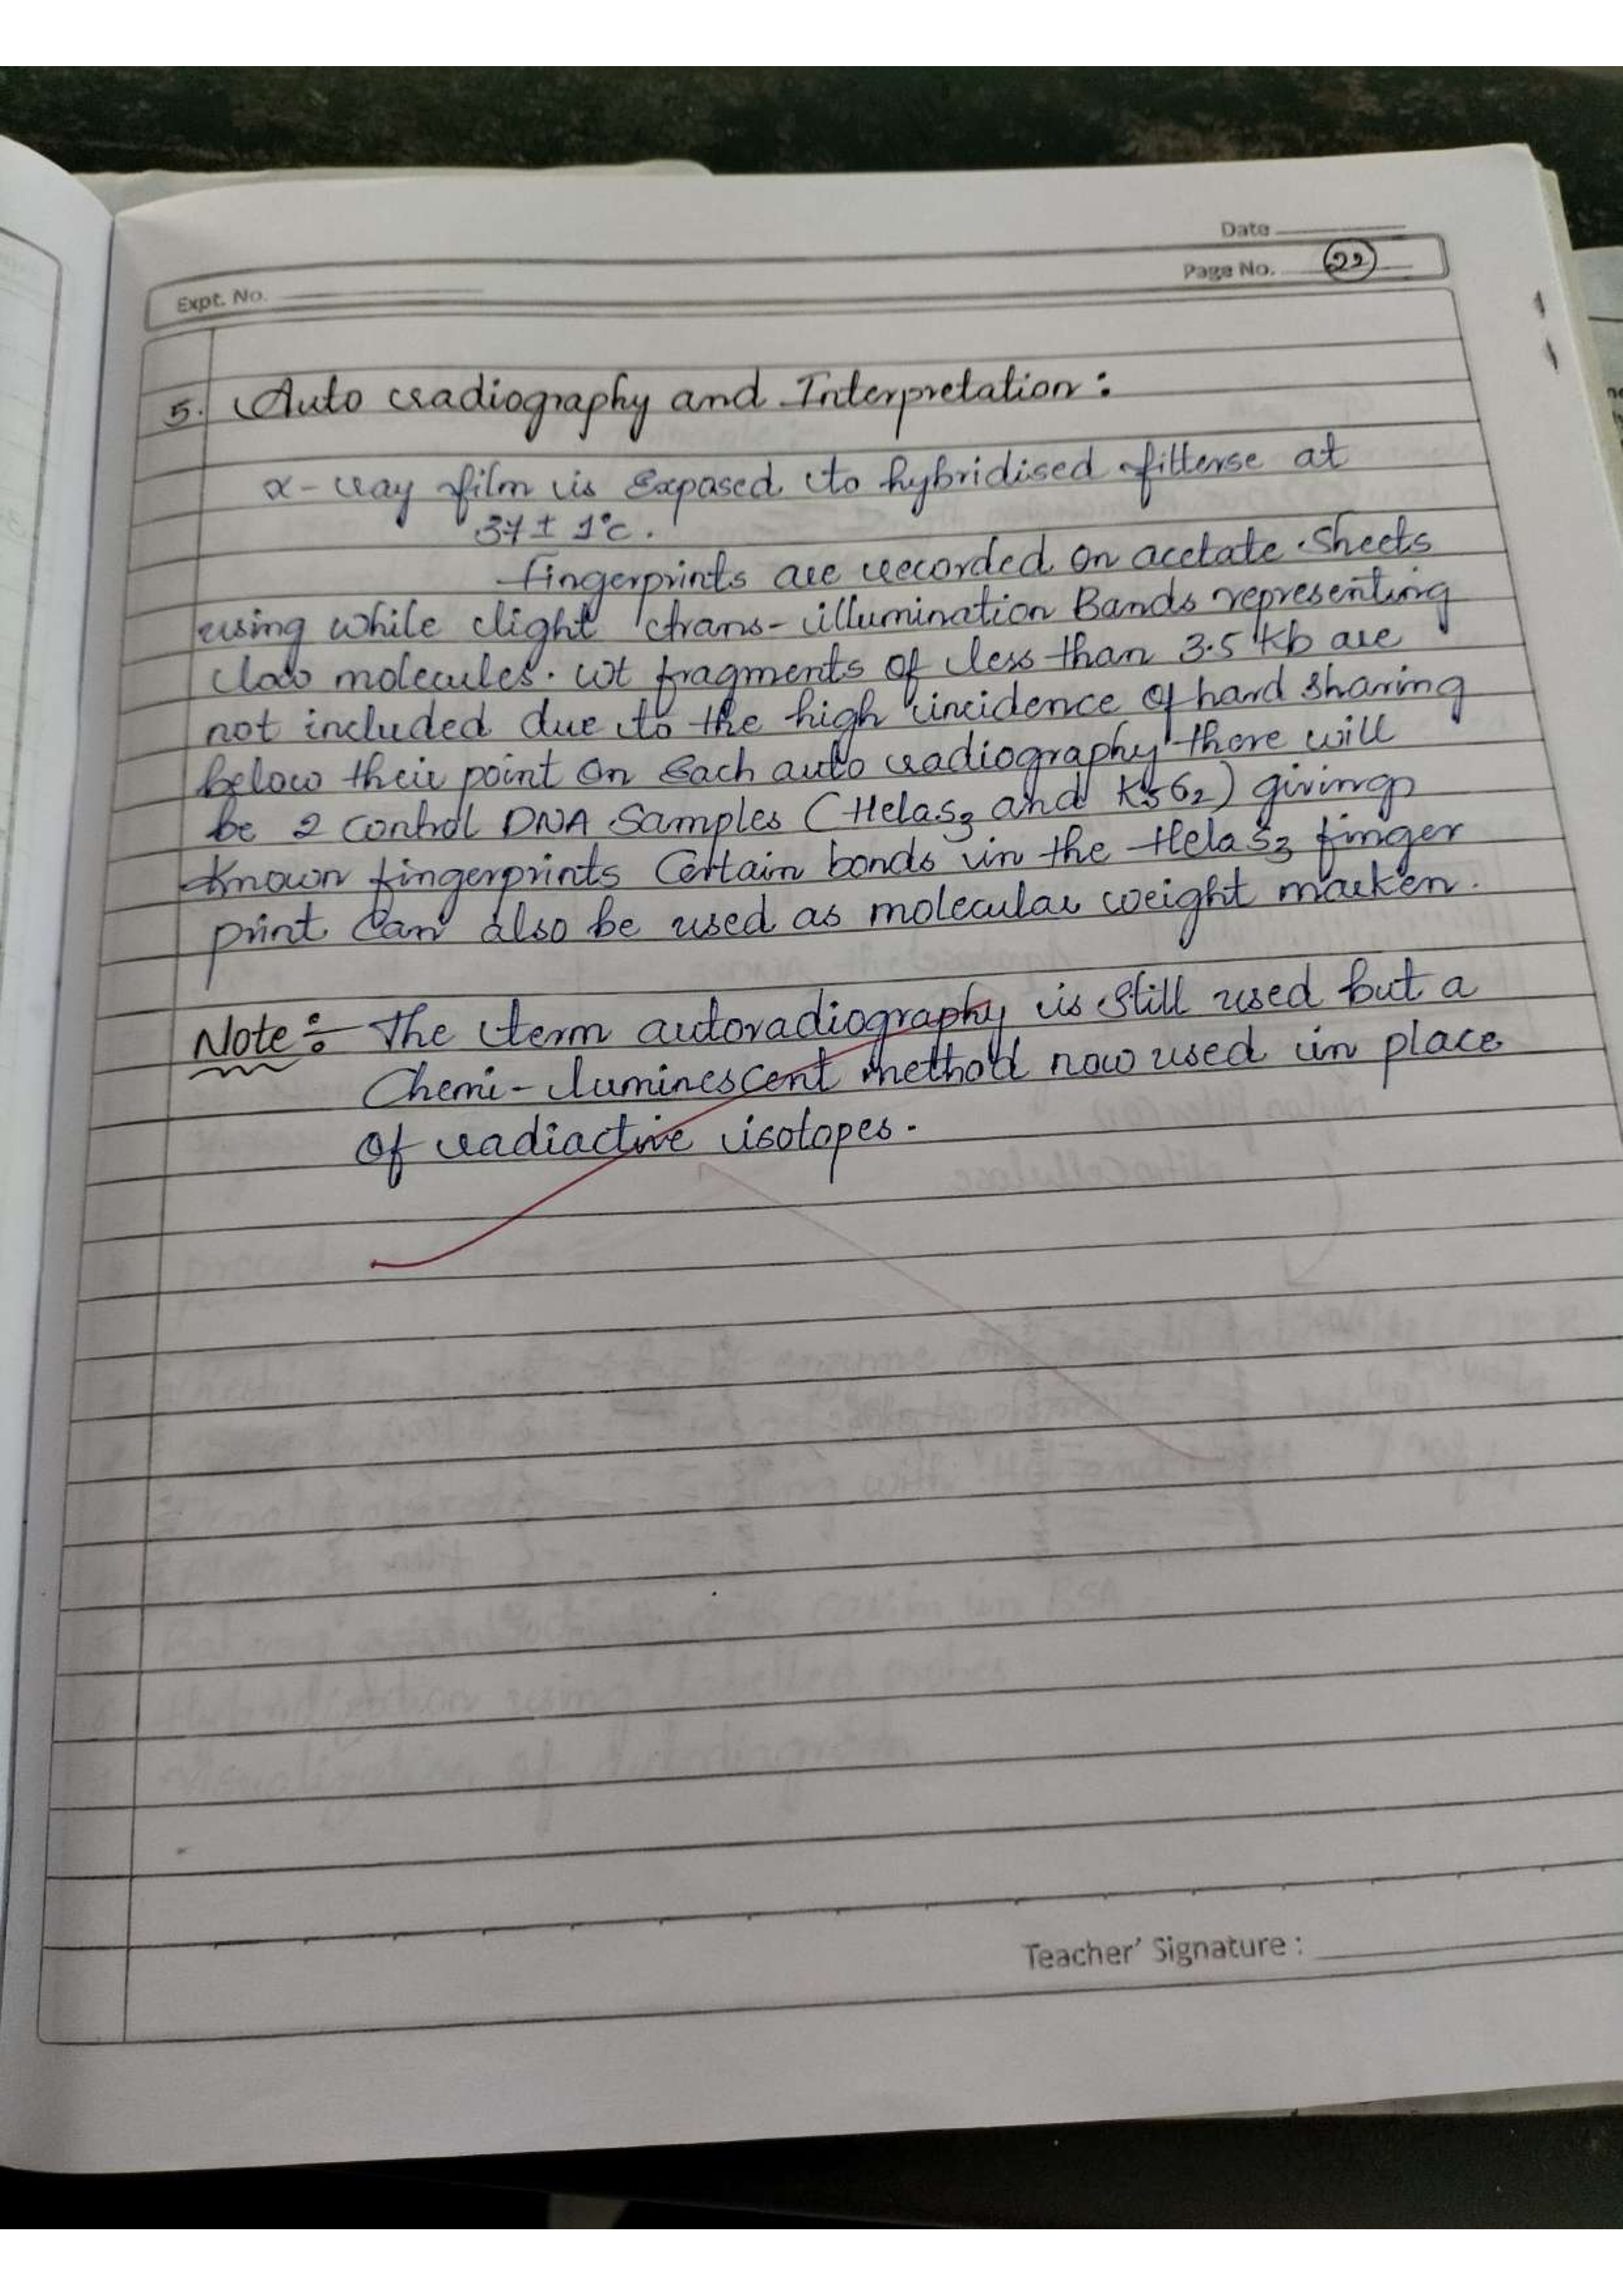 Date
Page No. 22
Expt. No.
5. Auto radiography and Interpretation:
x-ray film is Exposed to hybridised fitterse at
37 ± 1°c.
fingerprints are recorded on acetate sheets
using while light trans-illumination Bands representing
low molecules. wt fragments of less than 3.5 Kb are
not included due to the high incidence of hard sharing
below their point on Each auto radiography there will
be 2 control DNA Samples (HelaS3 and K562) giving
Known fingerprints Certain bonds in the HelaS3 finger
print can also be used as molecular weight marken.
Note:- The term autoradiography is still used but a
Chemi-luminescent method now used in place
of radiactive isotopes.
Teacher' Signature :